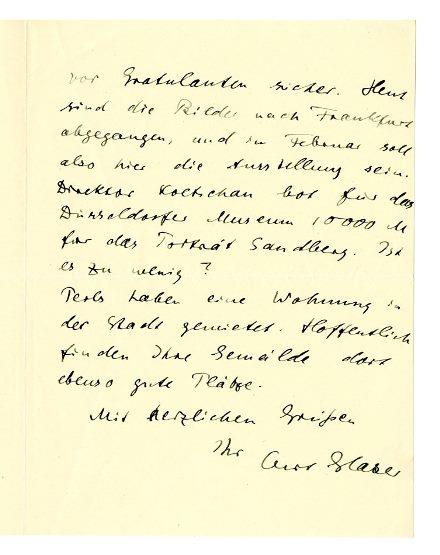 vor Gratulanten sicher. Heut
sind die Bilder nach Frankfurt
abgegangen, und im Februar soll
also hier die Ausstellung sein.
Direktor Koetschau bot für das
Düsseldorfer Museum 10000 M
für das Porträt Sandberg. Ist
es zu wenig?
Perls haben eine Wohnung in
der Stadt gemietet. Hoffentlich
finden Ihre Gemälde dort
ebenso gute Plätze.
Mit herzlichen Grüßen
Ihr
Curt Glaser